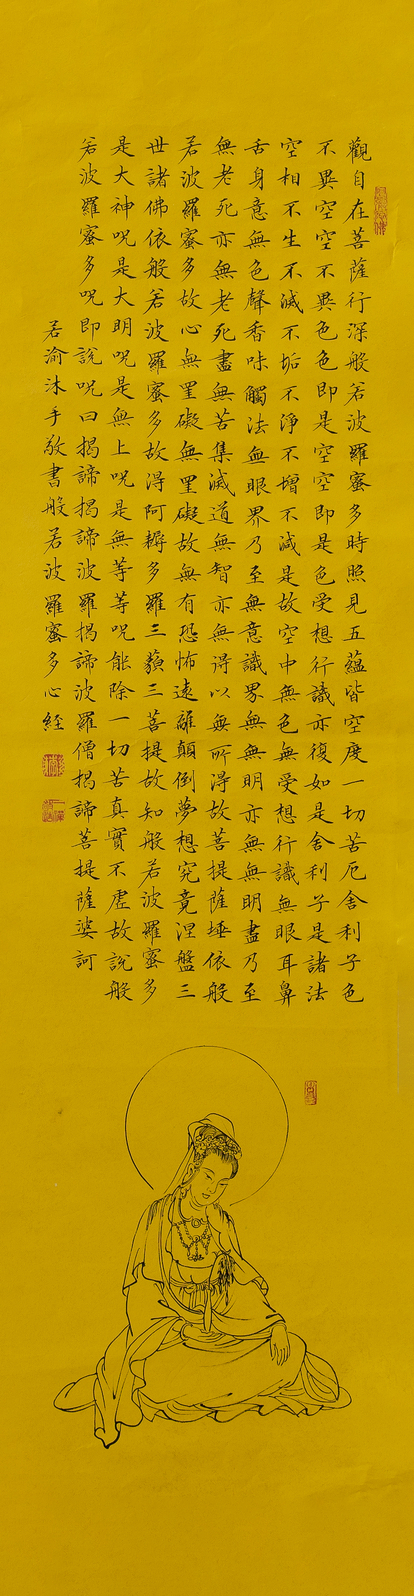 觀自在菩薩行深般若波羅蜜多時照見五蘊皆空度一切苦厄舍利子色
不異空空不異色色即是空空即是色受想行識亦復如是舍利子是諸法
空相不生不滅不垢不淨不增不減是故空中無色無受想行識無眼耳鼻
舌身意無色聲香味觸法無眼界乃至無意識界無無明亦無無明盡乃至
無老死亦無老死盡無苦集滅道無智亦無得以無所得故菩提薩埵依般
若波羅蜜多故心無罣礙無罣礙故無有恐怖遠離顛倒夢想究竟涅盤三
世諸佛依般若波羅蜜多故得阿耨多羅三藐三菩提故知般若波羅蜜多
是大神呪是大明呪是無上呪是無等等呪能除一切苦真實不虛故說般
若波羅蜜多呪即說呪曰揭諦揭諦波羅揭諦波羅僧揭諦菩提薩婆訶
若渝沐手敬書般若波羅蜜多心經